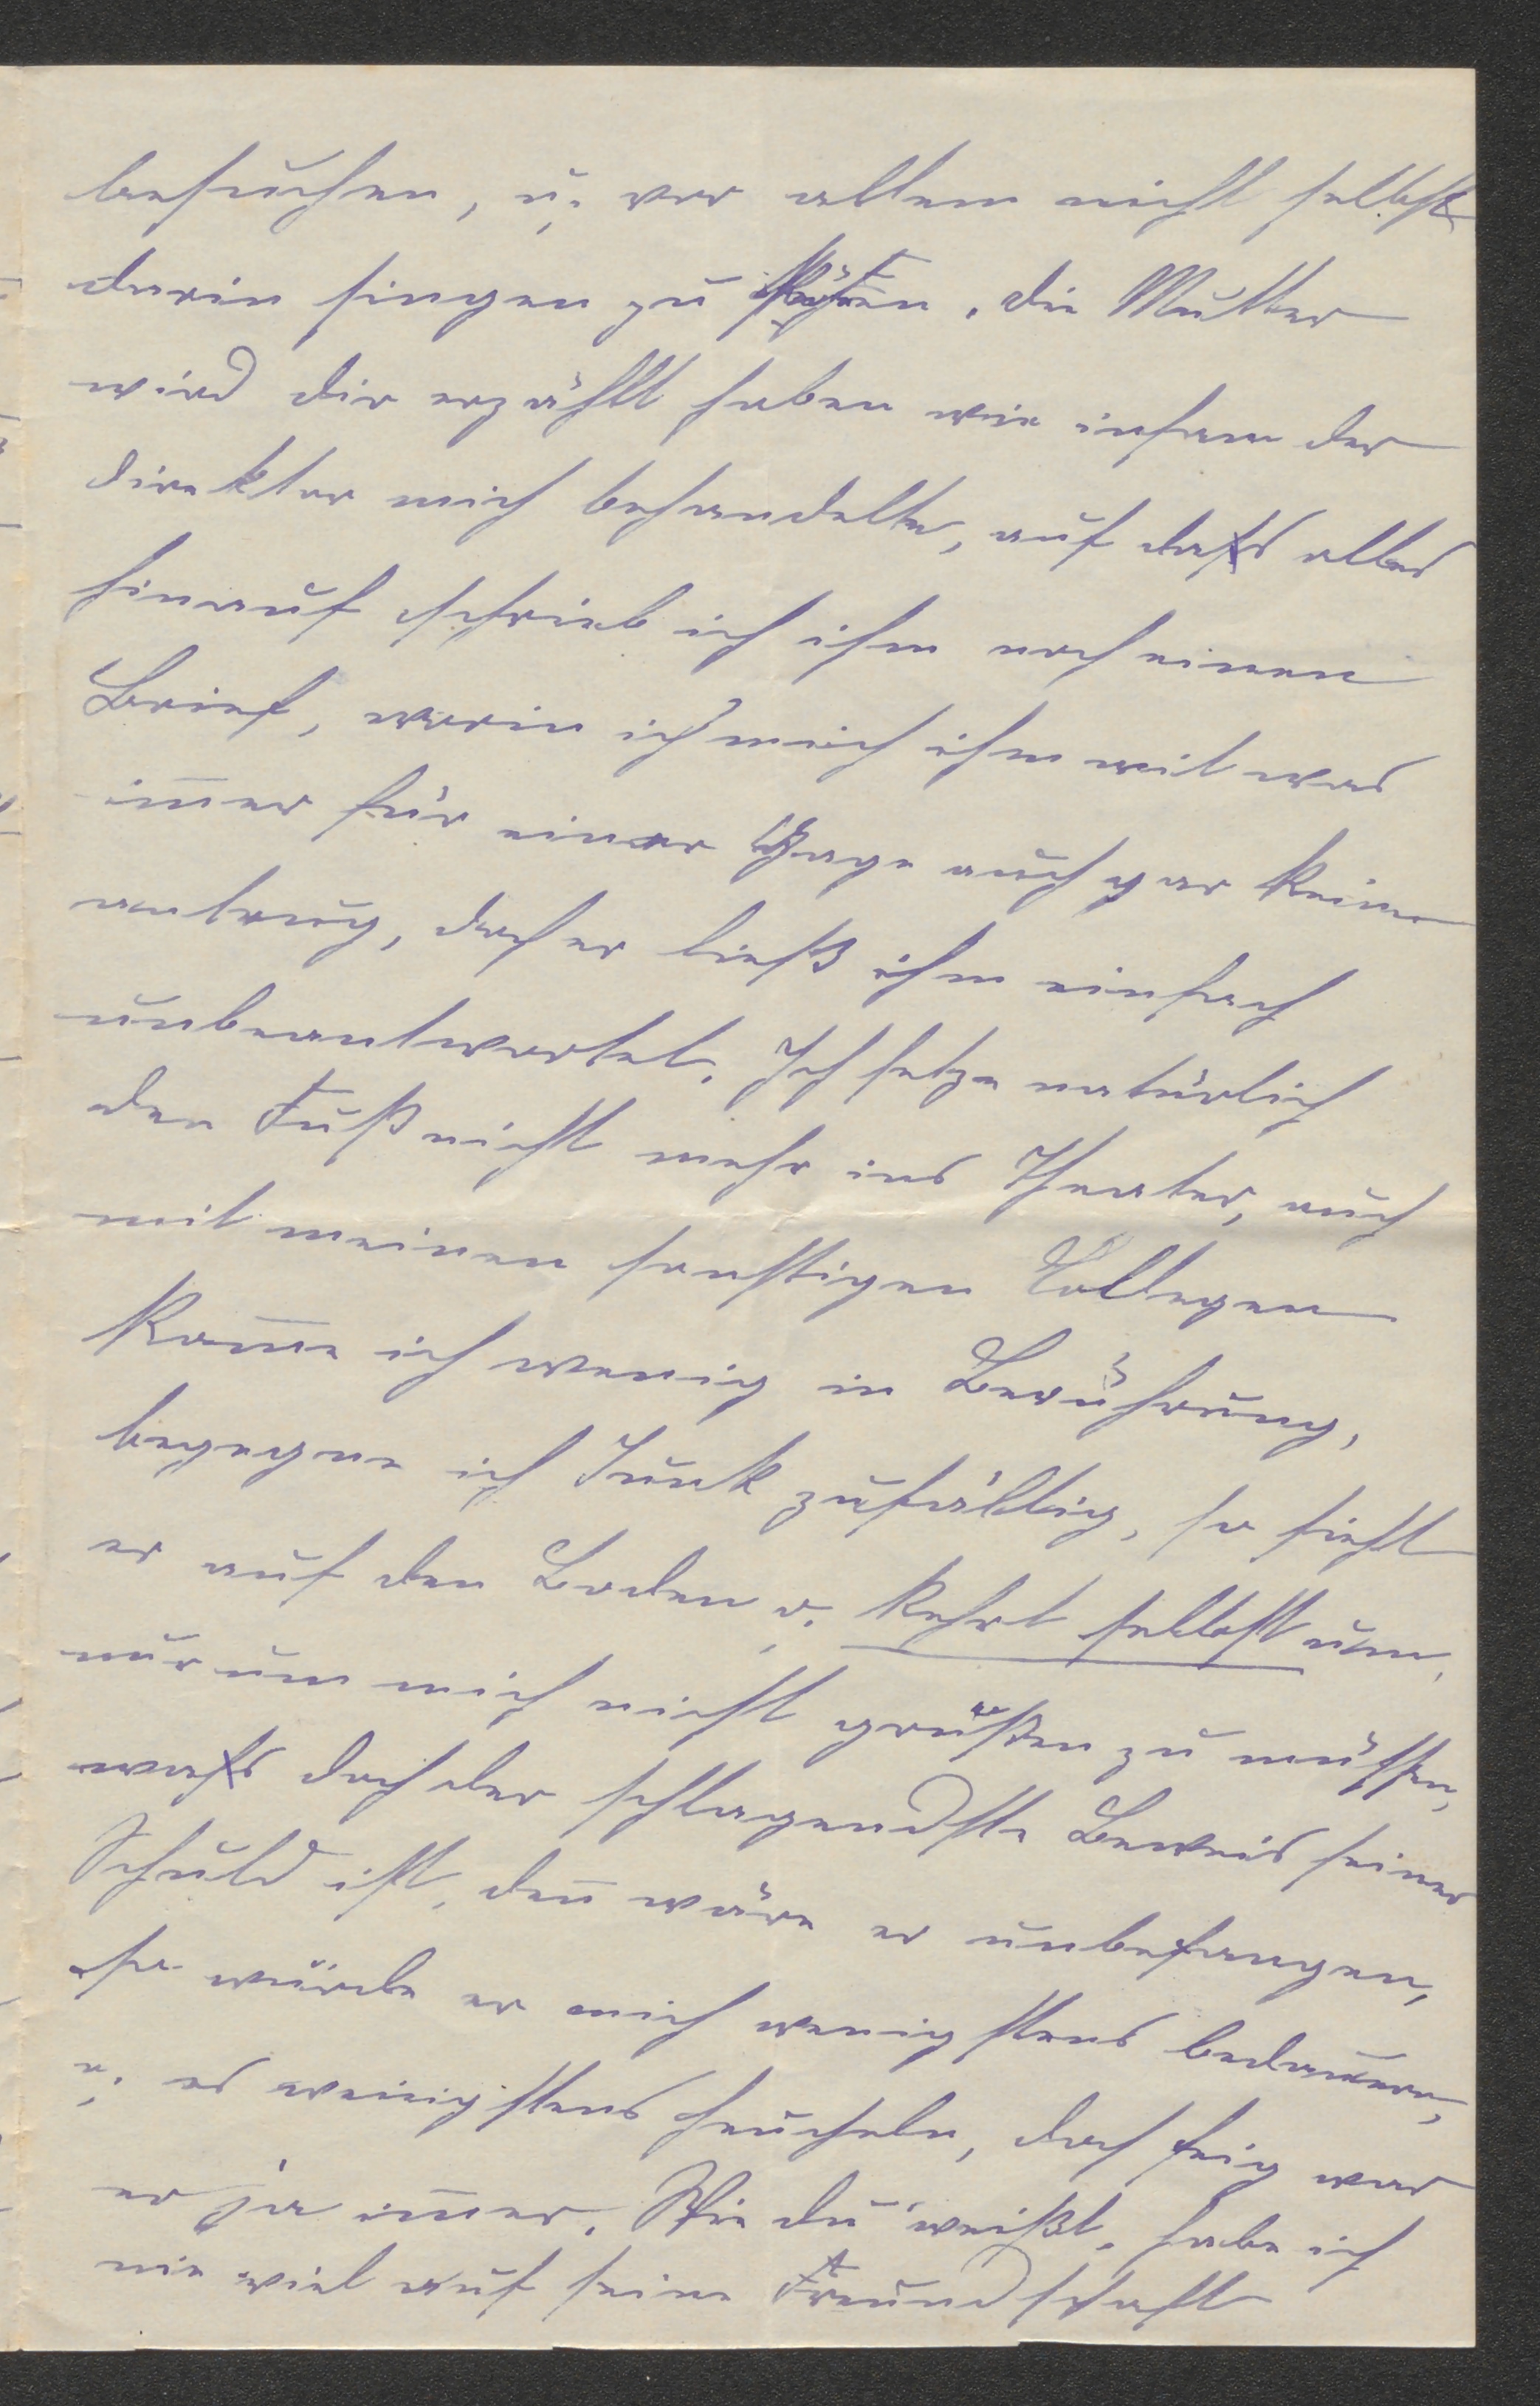 besuchen, u. vor allem nicht selbst
darin singen zu dürfen. Die Mutter
wird dir erzählt haben wie infam der
Direktor mich behandelte, auf dass alles
hinauf schrieb ich ihm noch einen
Brief, worin ich mich ihm mit was
im̄er für einer Gage auch gar keine
antrug, doch er ließ ihn einfach
unbeantwortet. Ich setze natürlich
den Fuß nicht mehr ins Theater, auch
mit meinen sonstigen Collegen
kom̄e ich wenig in Berührung,
begegne ich Junk zufällig, so sieht
er auf den Boden o. kehrt selbst um,
nur um mich nicht grüßen zu müssen,
wass doch der schlagendste Beweis seiner
Schuld ist, den̄ wäre er unbefangen,
so würde er mich wenigstens bedauern,
u. es wenigstens heucheln, doch feig war
er ja im̄er. Wie du weißt, habe ich
nie viel auf seine Freundschaft